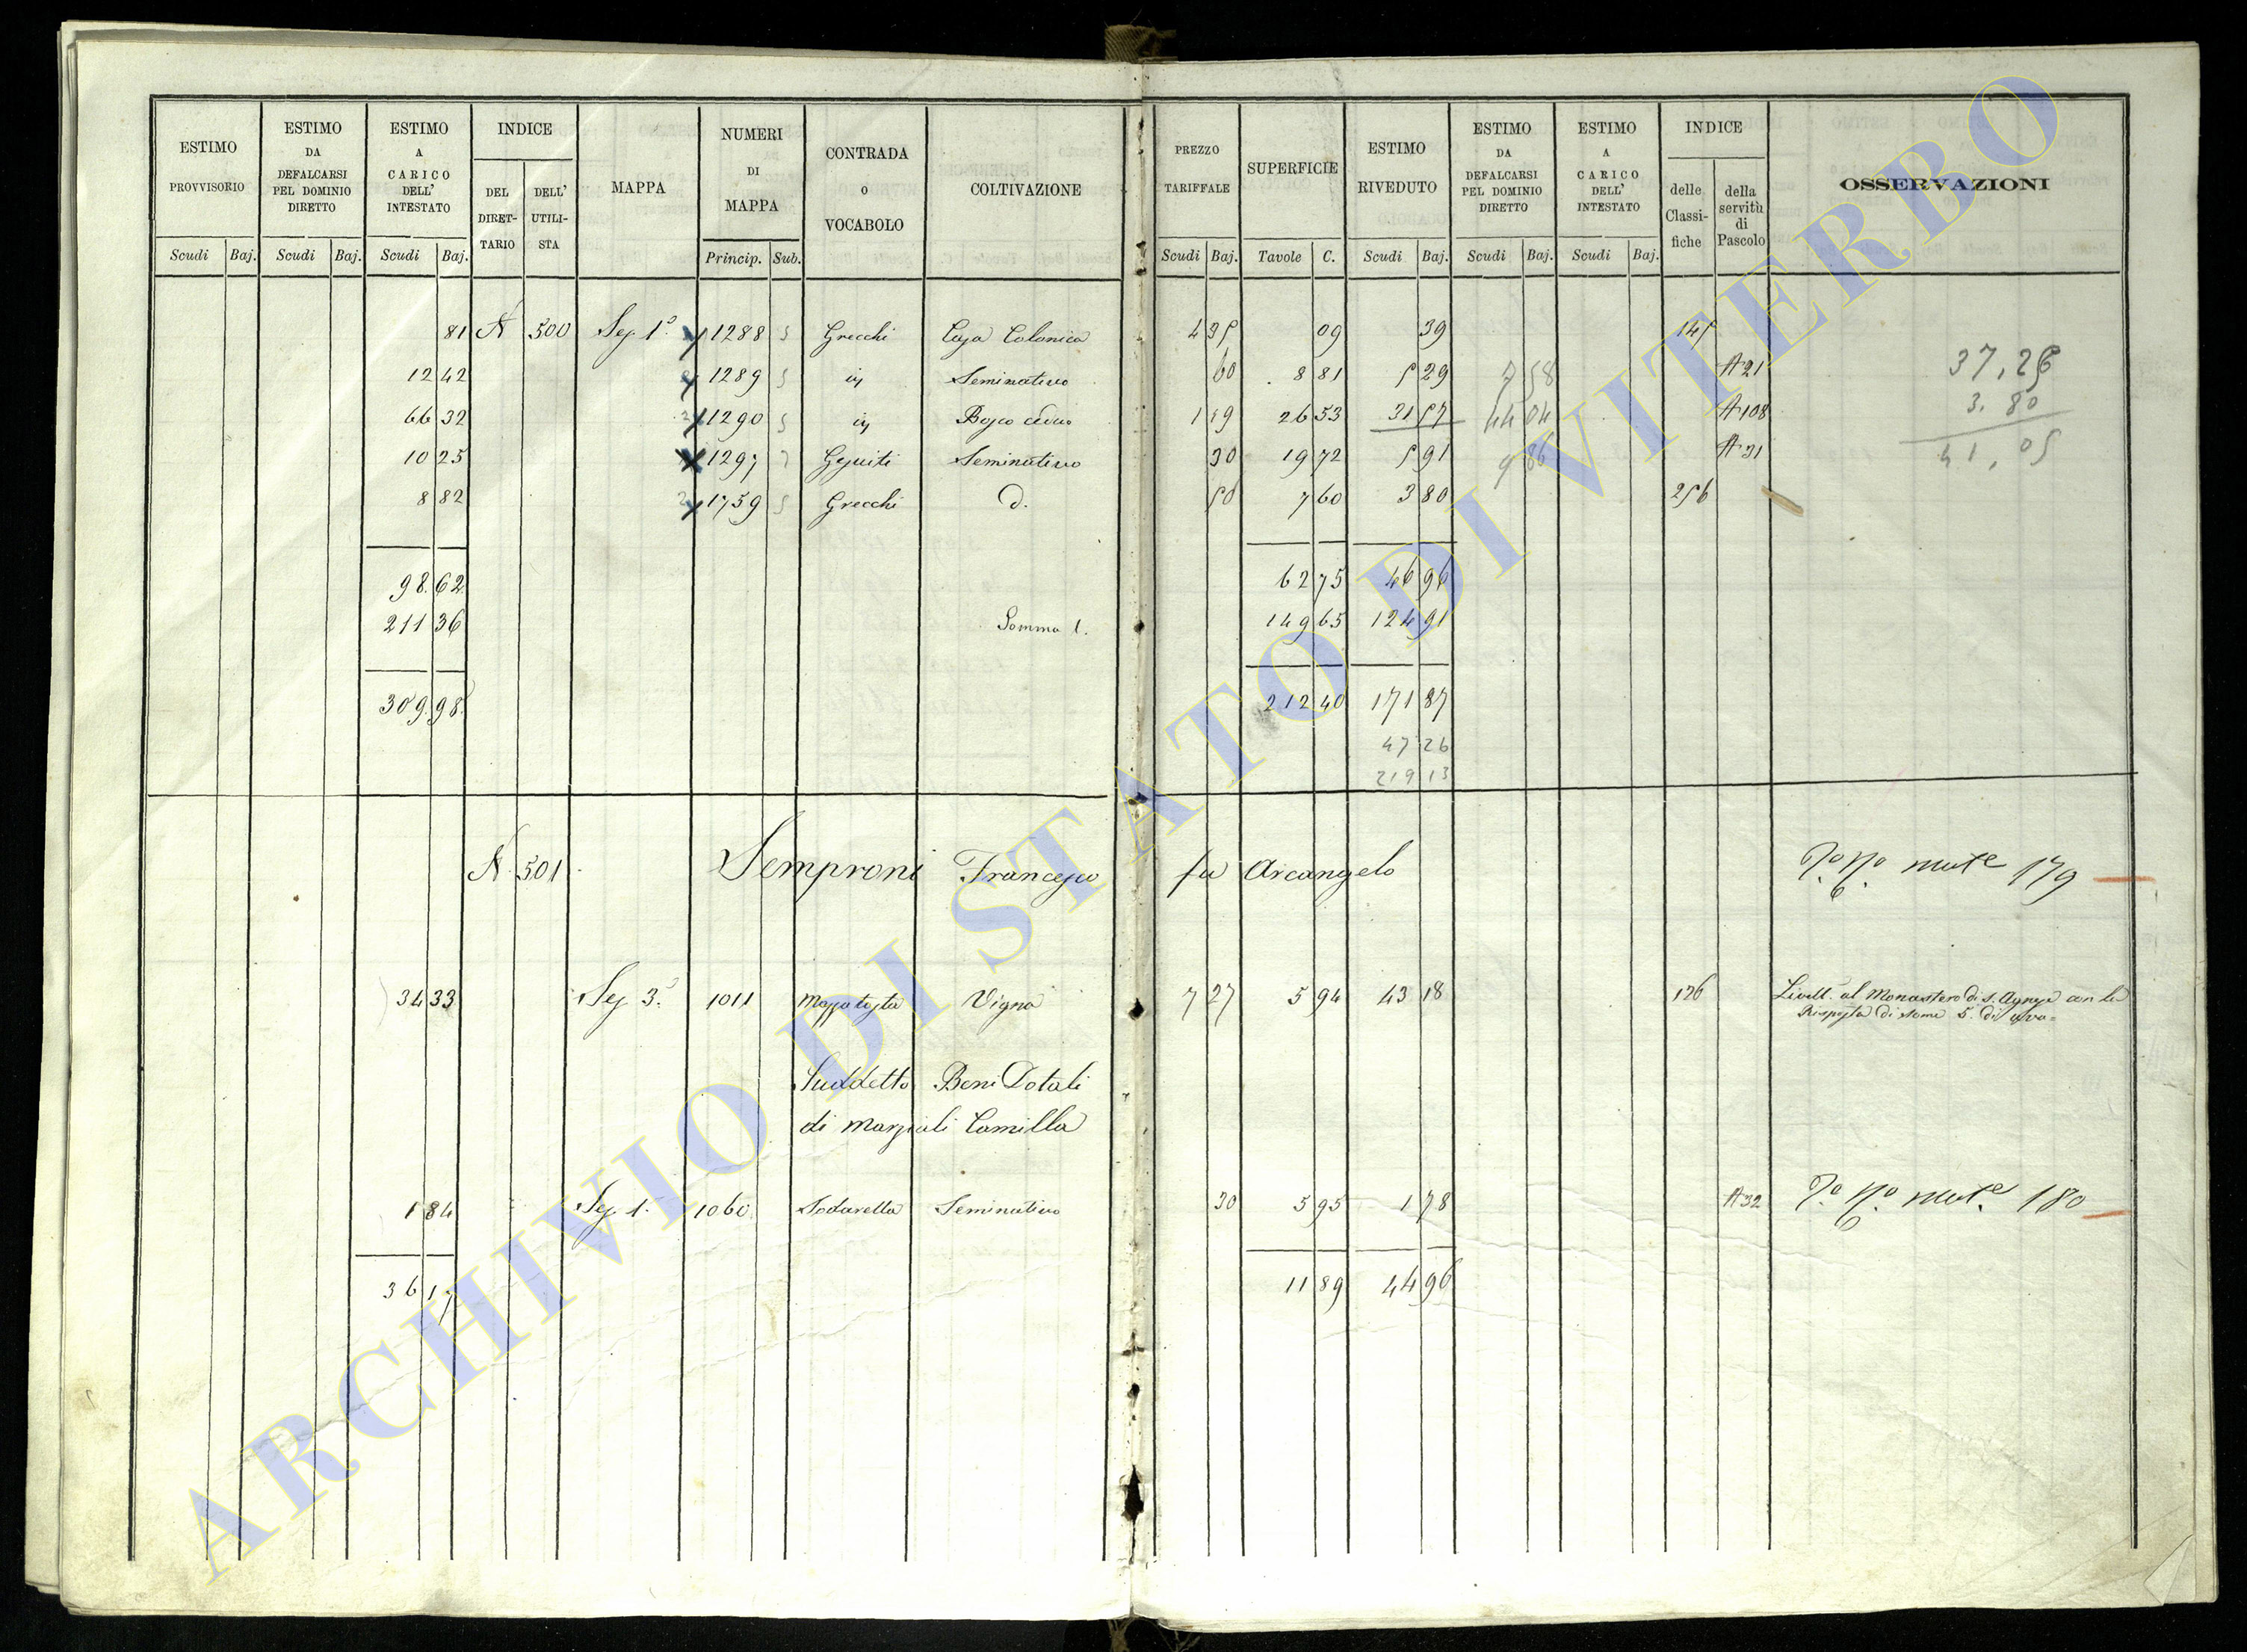 ESTIMO PROVVISORIO
ESTIMO DA DEFALCARSI PEL DOMINIO DIRETTO
ESTIMO A CARICO DELL' INTESTATO
INDICE
DEL DIRET- TARIO
DELL' UTILI- STA
MAPPA
NUMERI DI MAPPA
CONTRADA O VOCABOLO
COLTIVAZIONE
PREZZO TARIFFALE
SUPERFICIE
ESTIMO RIVEDUTO
ESTIMO DA DEFALCARSI PEL DOMINIO DIRETTO
ESTIMO A CARICO DELL' INTESTATO
INDICE
delle Classi- fiche
della servitù di Pascolo
OSSERVAZIONI
Scudi Baj. Scudi Baj. Scudi Baj. Princip. Sub. Scudi Baj. Tavole C. Scudi Baj. Scudi Baj. Scudi Baj.
81 N 500 Sez. 1ª 1288 Grecchi Casa Colonica 4 35 09 39 145
12 42 1289 id Seminativo 60 8 81 5 29 7 58 A 21
66 32 1290 id Bosco ceduo 1 19 26 53 31 57 44 04 A 108
10 25 1297 Gesuiti Seminativo 30 19 72 5 91 9 86 A 31
8 82 1759 Grecchi d. 50 7 60 3 80 256
37,26
3.80
41,05
98.62 62 75 46 96
211 36 Somma l. 149 65 124 91
309.98. 212 40 171 87
47 26
219 13
N. 501. Semproni Francesco fu Arcangelo mute 179
34 33 Sez. 3ª 1011 Mazzatosta Vigna 7 27 5 94 43 18 126 Livell.º al Monastero di S. Agnese con la
Risposta di some 5. di uva=
Suddetto Beni Dotali
di Marziali Camilla
1 84 Sez. 1ª 1060 Sodarella Seminativo 30 5 95 1 78 A 32 mute. 180
36 17 11 89 44 96
ARCHIVIO DI STATO DI VITERBO